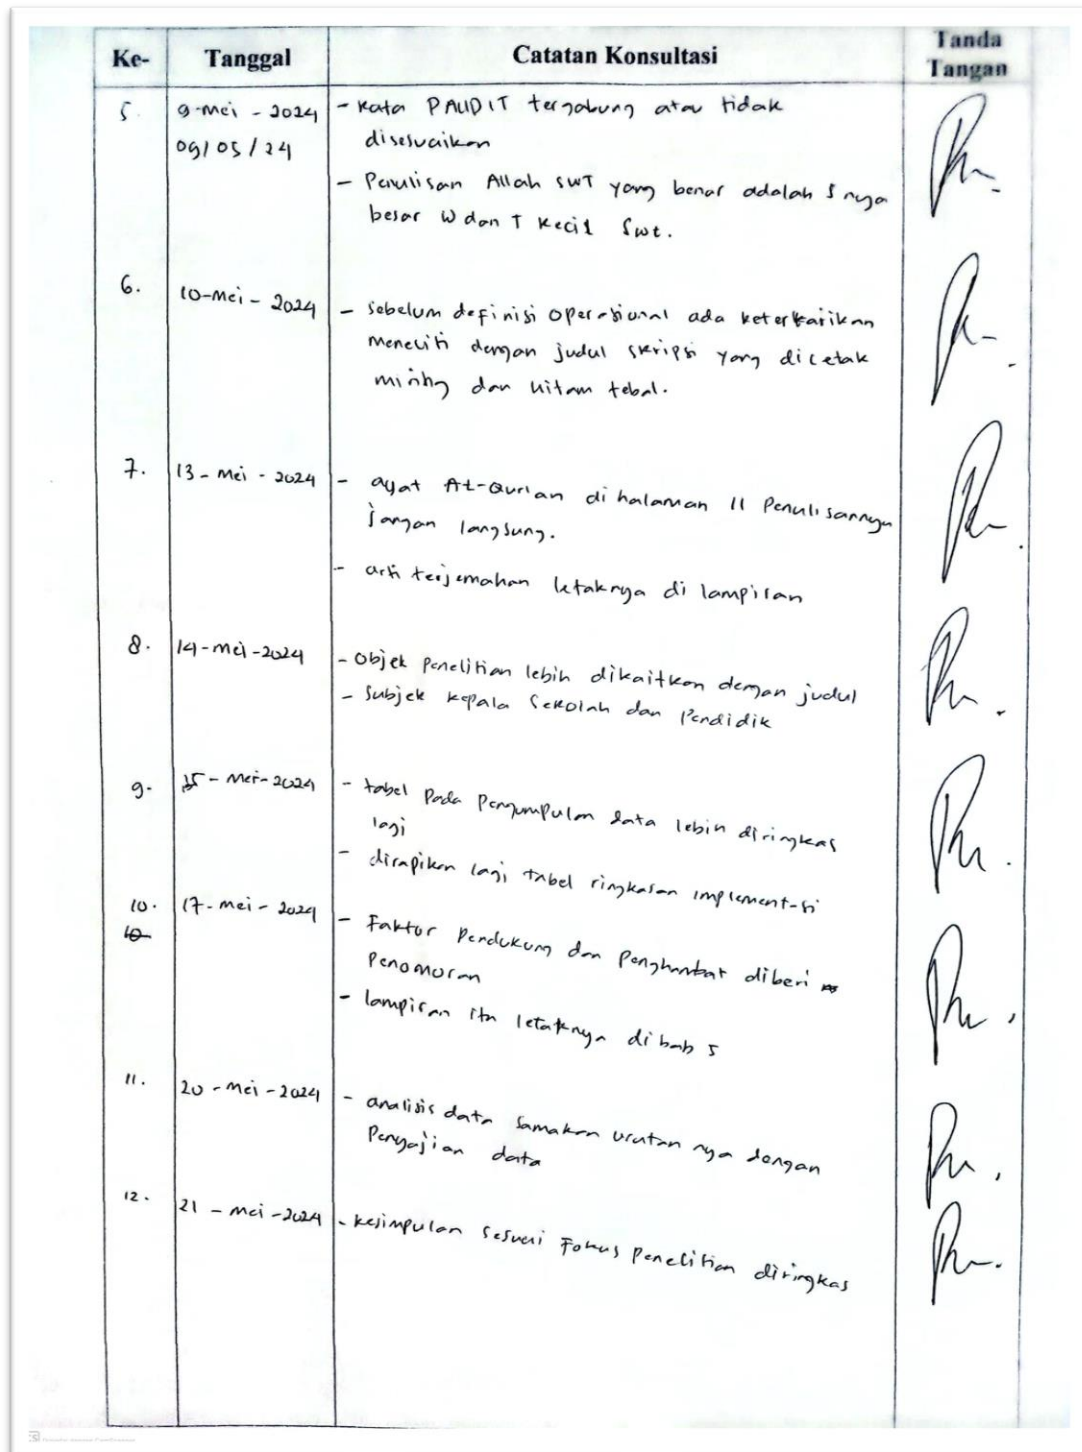 Ke- Tanggal Catatan Konsultasi Tanda Tangan
5. 9-mei-2024 - kata PAUDIT tergabung atau tidak
09/05/24 disesuaikan
- Penulisan Allah SWT yang benar adalah S nya
besar W dan T kecil Swt.
6. 10-mei-2024 - sebelum definisi operasional ada keterkarikan
meneliti dengan judul skripsi yang dicetak
miring dan hitam tebal.
7. 13-mei-2024 - ayat Al-Qur'an di halaman 11 Penulisannya
jangan langsung.
- arti terjemahan letaknya di lampiran
8. 14-mei-2024 - Objek Penelitian lebih dikaitkan dengan judul
- Subjek kepala Sekolah dan Pendidik
9. 15-mei-2024 - tabel Pada Pengumpulan data lebih diringkas
lagi
- dirapikan lagi tabel ringkasan implementasi
10. 17-mei-2024 - Faktor Pendukung dan Penghambat diberi
10 Penomoran
- lampiran itu letaknya di bab 5
11. 20-mei-2024 - analisis data samakan urutan nya dengan
Penyajian data
12. 21-mei-2024 - kesimpulan sesuai Fokus Penelitian diringkas